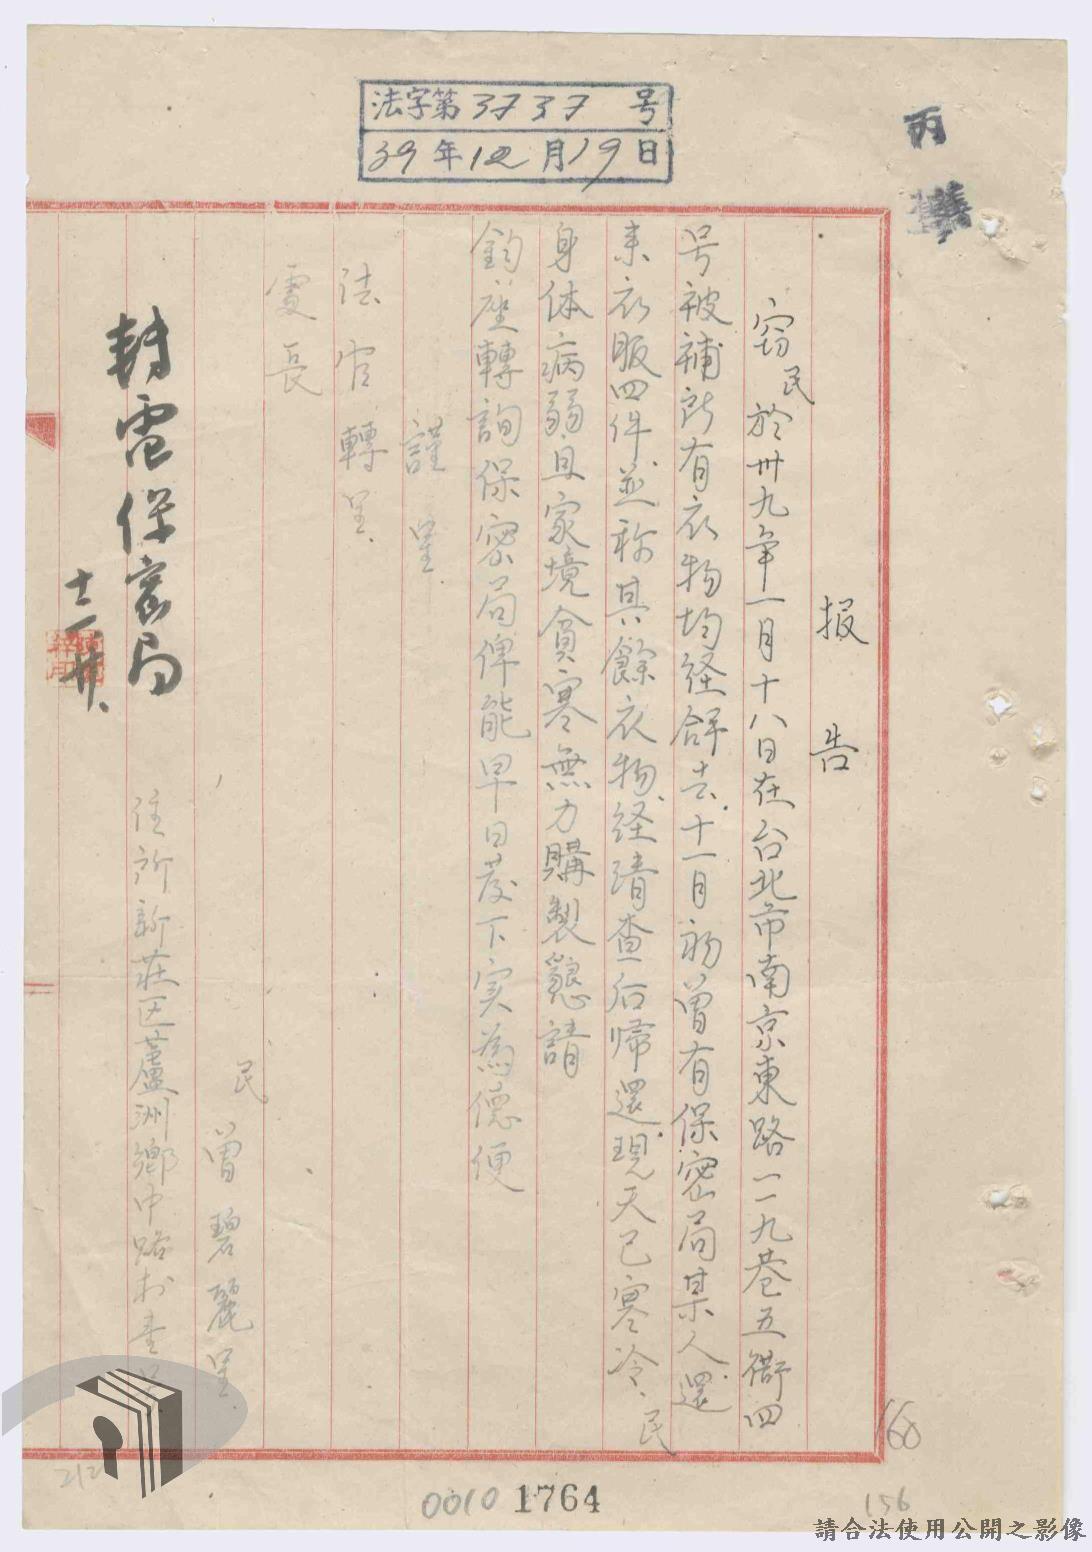 法字第3737号
39年12月19日
丙
報告
窃民於卅九年一月十八日在台北市南京東路一一九巷五衖四
号被補所有衣物均経拿去、十一月初曾有保密局某人還
来衣服四件並称其餘衣物、経清查后帰還、現天已寒冷、民
身体病弱且家境貧寒無力購製懇請
鈞座轉詢保密局俾能早日發下实為德便
謹呈
法官轉呈
處長
民 曾碧麗呈
住所新莊区蘆洲鄉中路村
封電保密局
十二、廿、
160
212
0010 1764
156
請合法使用公開之影像